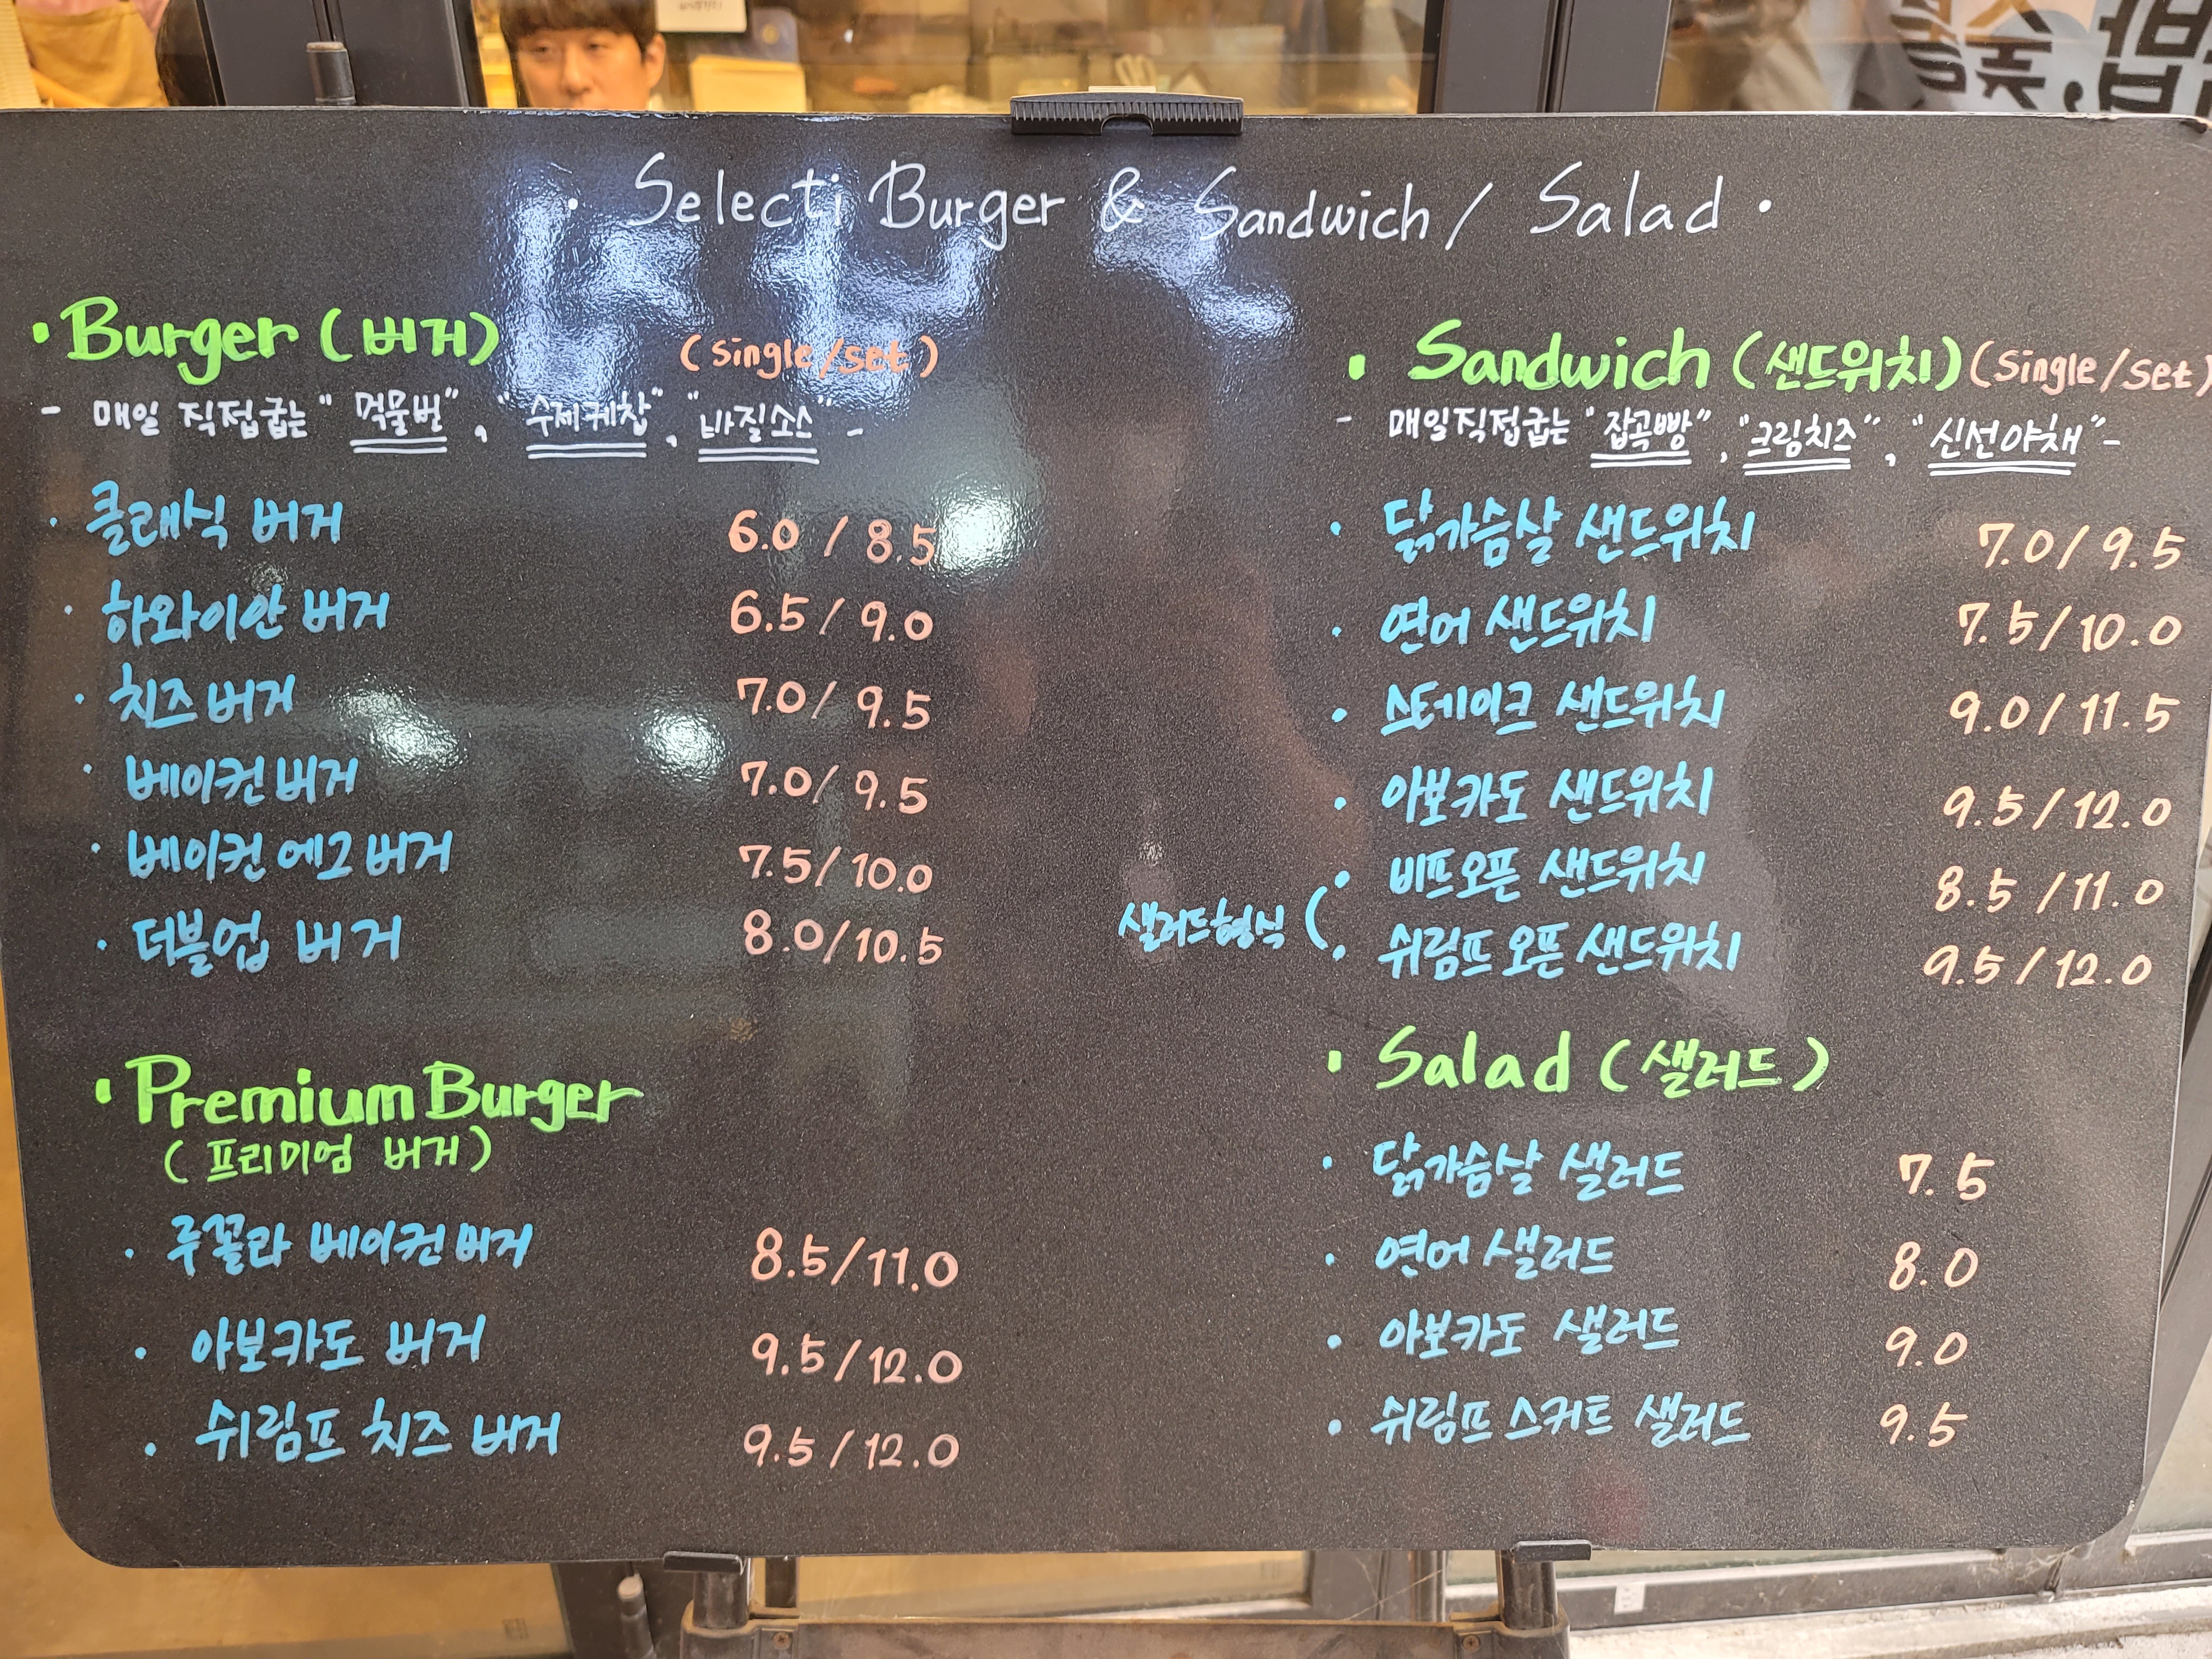 · Selecti Burger & Sandwich / Salad ·
· Burger (버거) (single/set)
- 매일 직접굽는 "먹물번", "수제케찹", "바질소스" -
· 클래식 버거 6.0 / 8.5
· 하와이안 버거 6.5 / 9.0
· 치즈버거 7.0 / 9.5
· 베이컨버거 7.0 / 9.5
· 베이컨 에그버거 7.5 / 10.0
· 더블업 버거 8.0 / 10.5
· Premium Burger
(프리미엄 버거)
· 루꼴라 베이컨 버거 8.5 / 11.0
· 아보카도 버거 9.5 / 12.0
· 쉬림프 치즈 버거 9.5 / 12.0
· Sandwich (샌드위치) (single/set)
- 매일직접굽는 "잡곡빵", "크림치즈", "신선야채" -
· 닭가슴살 샌드위치 7.0 / 9.5
· 연어 샌드위치 7.5 / 10.0
· 스테이크 샌드위치 9.0 / 11.5
· 아보카도 샌드위치 9.5 / 12.0
· 비프오픈 샌드위치 8.5 / 11.0
샐러드형식 (
· 쉬림프 오픈 샌드위치 9.5 / 12.0
· Salad (샐러드)
· 닭가슴살 샐러드 7.5
· 연어 샐러드 8.0
· 아보카도 샐러드 9.0
· 쉬림프 스커트 샐러드 9.5